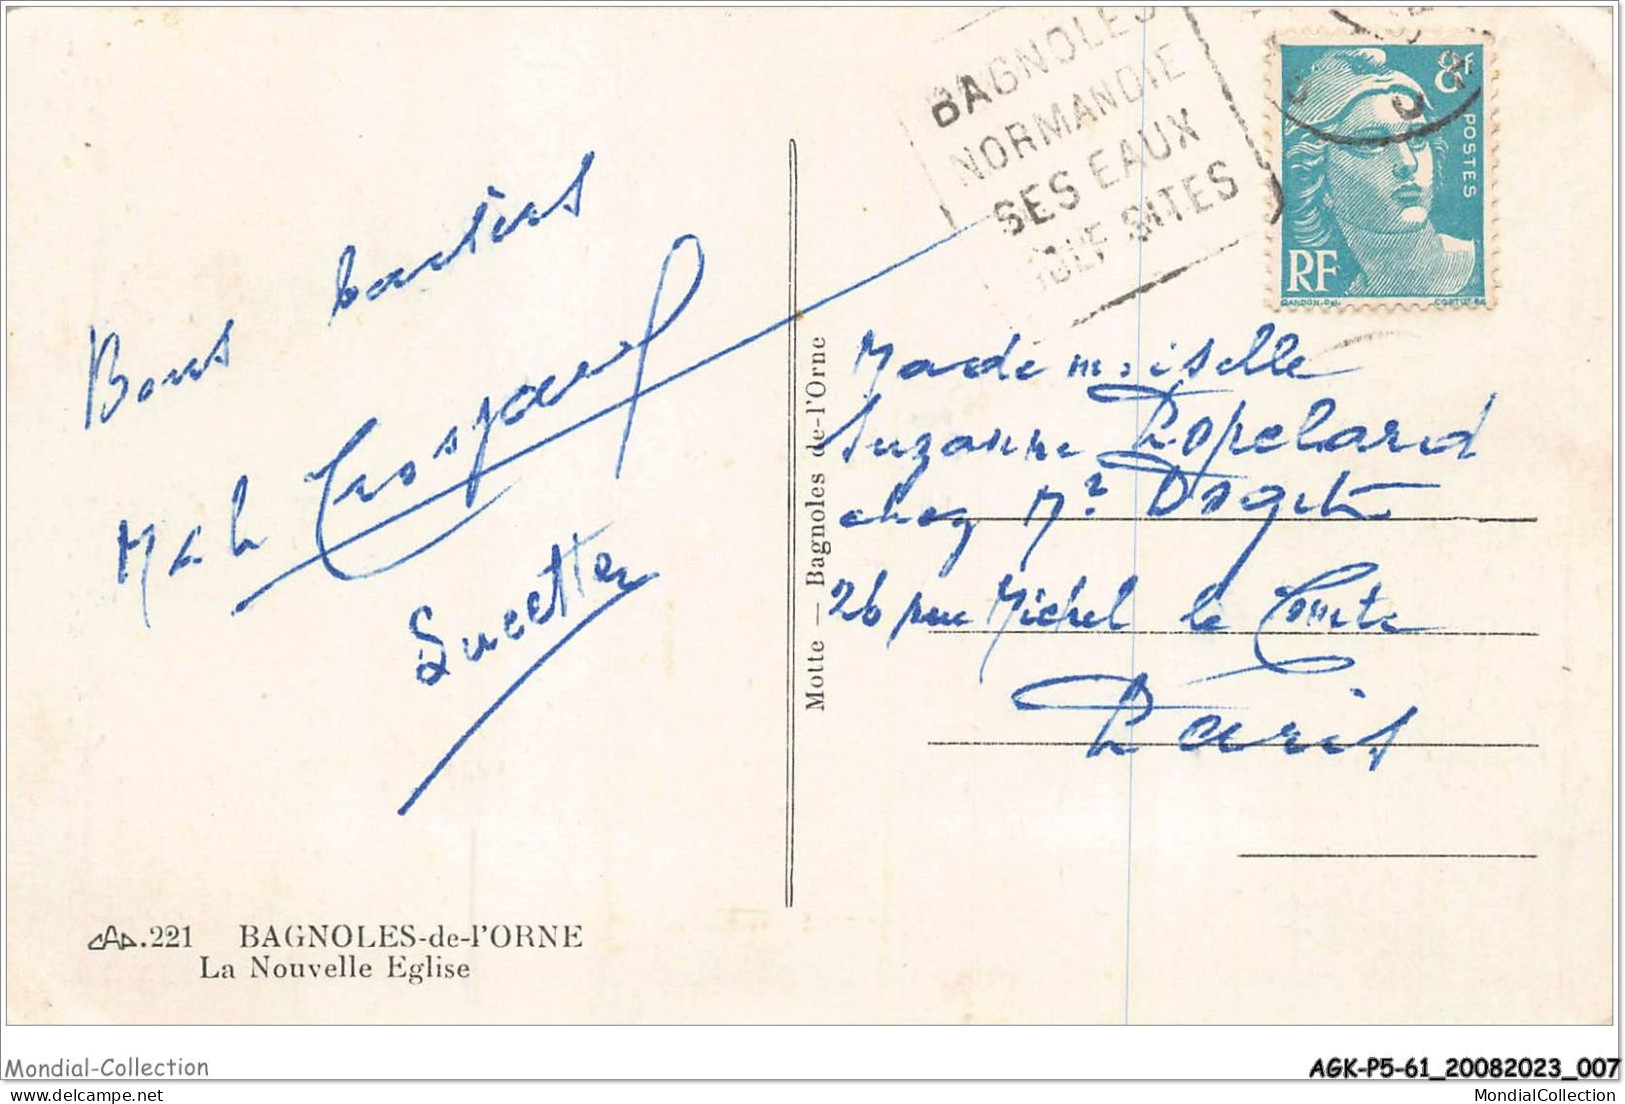 BAGNOLES
NORMANDIE
SES EAUX
SITES
8F
POSTES
RF
GANDON
Bons baisers
Mademoiselle
Suzanne Popelard
chez Mr
26 rue Michel le Comte
Paris
Sucette
Motte — Bagnoles de-l'Orne
CAP.221 BAGNOLES-de-l'ORNE
La Nouvelle Eglise
Mondial-Collection
AGK-P5-61_20082023_007
delcampe.net
MondialCollection